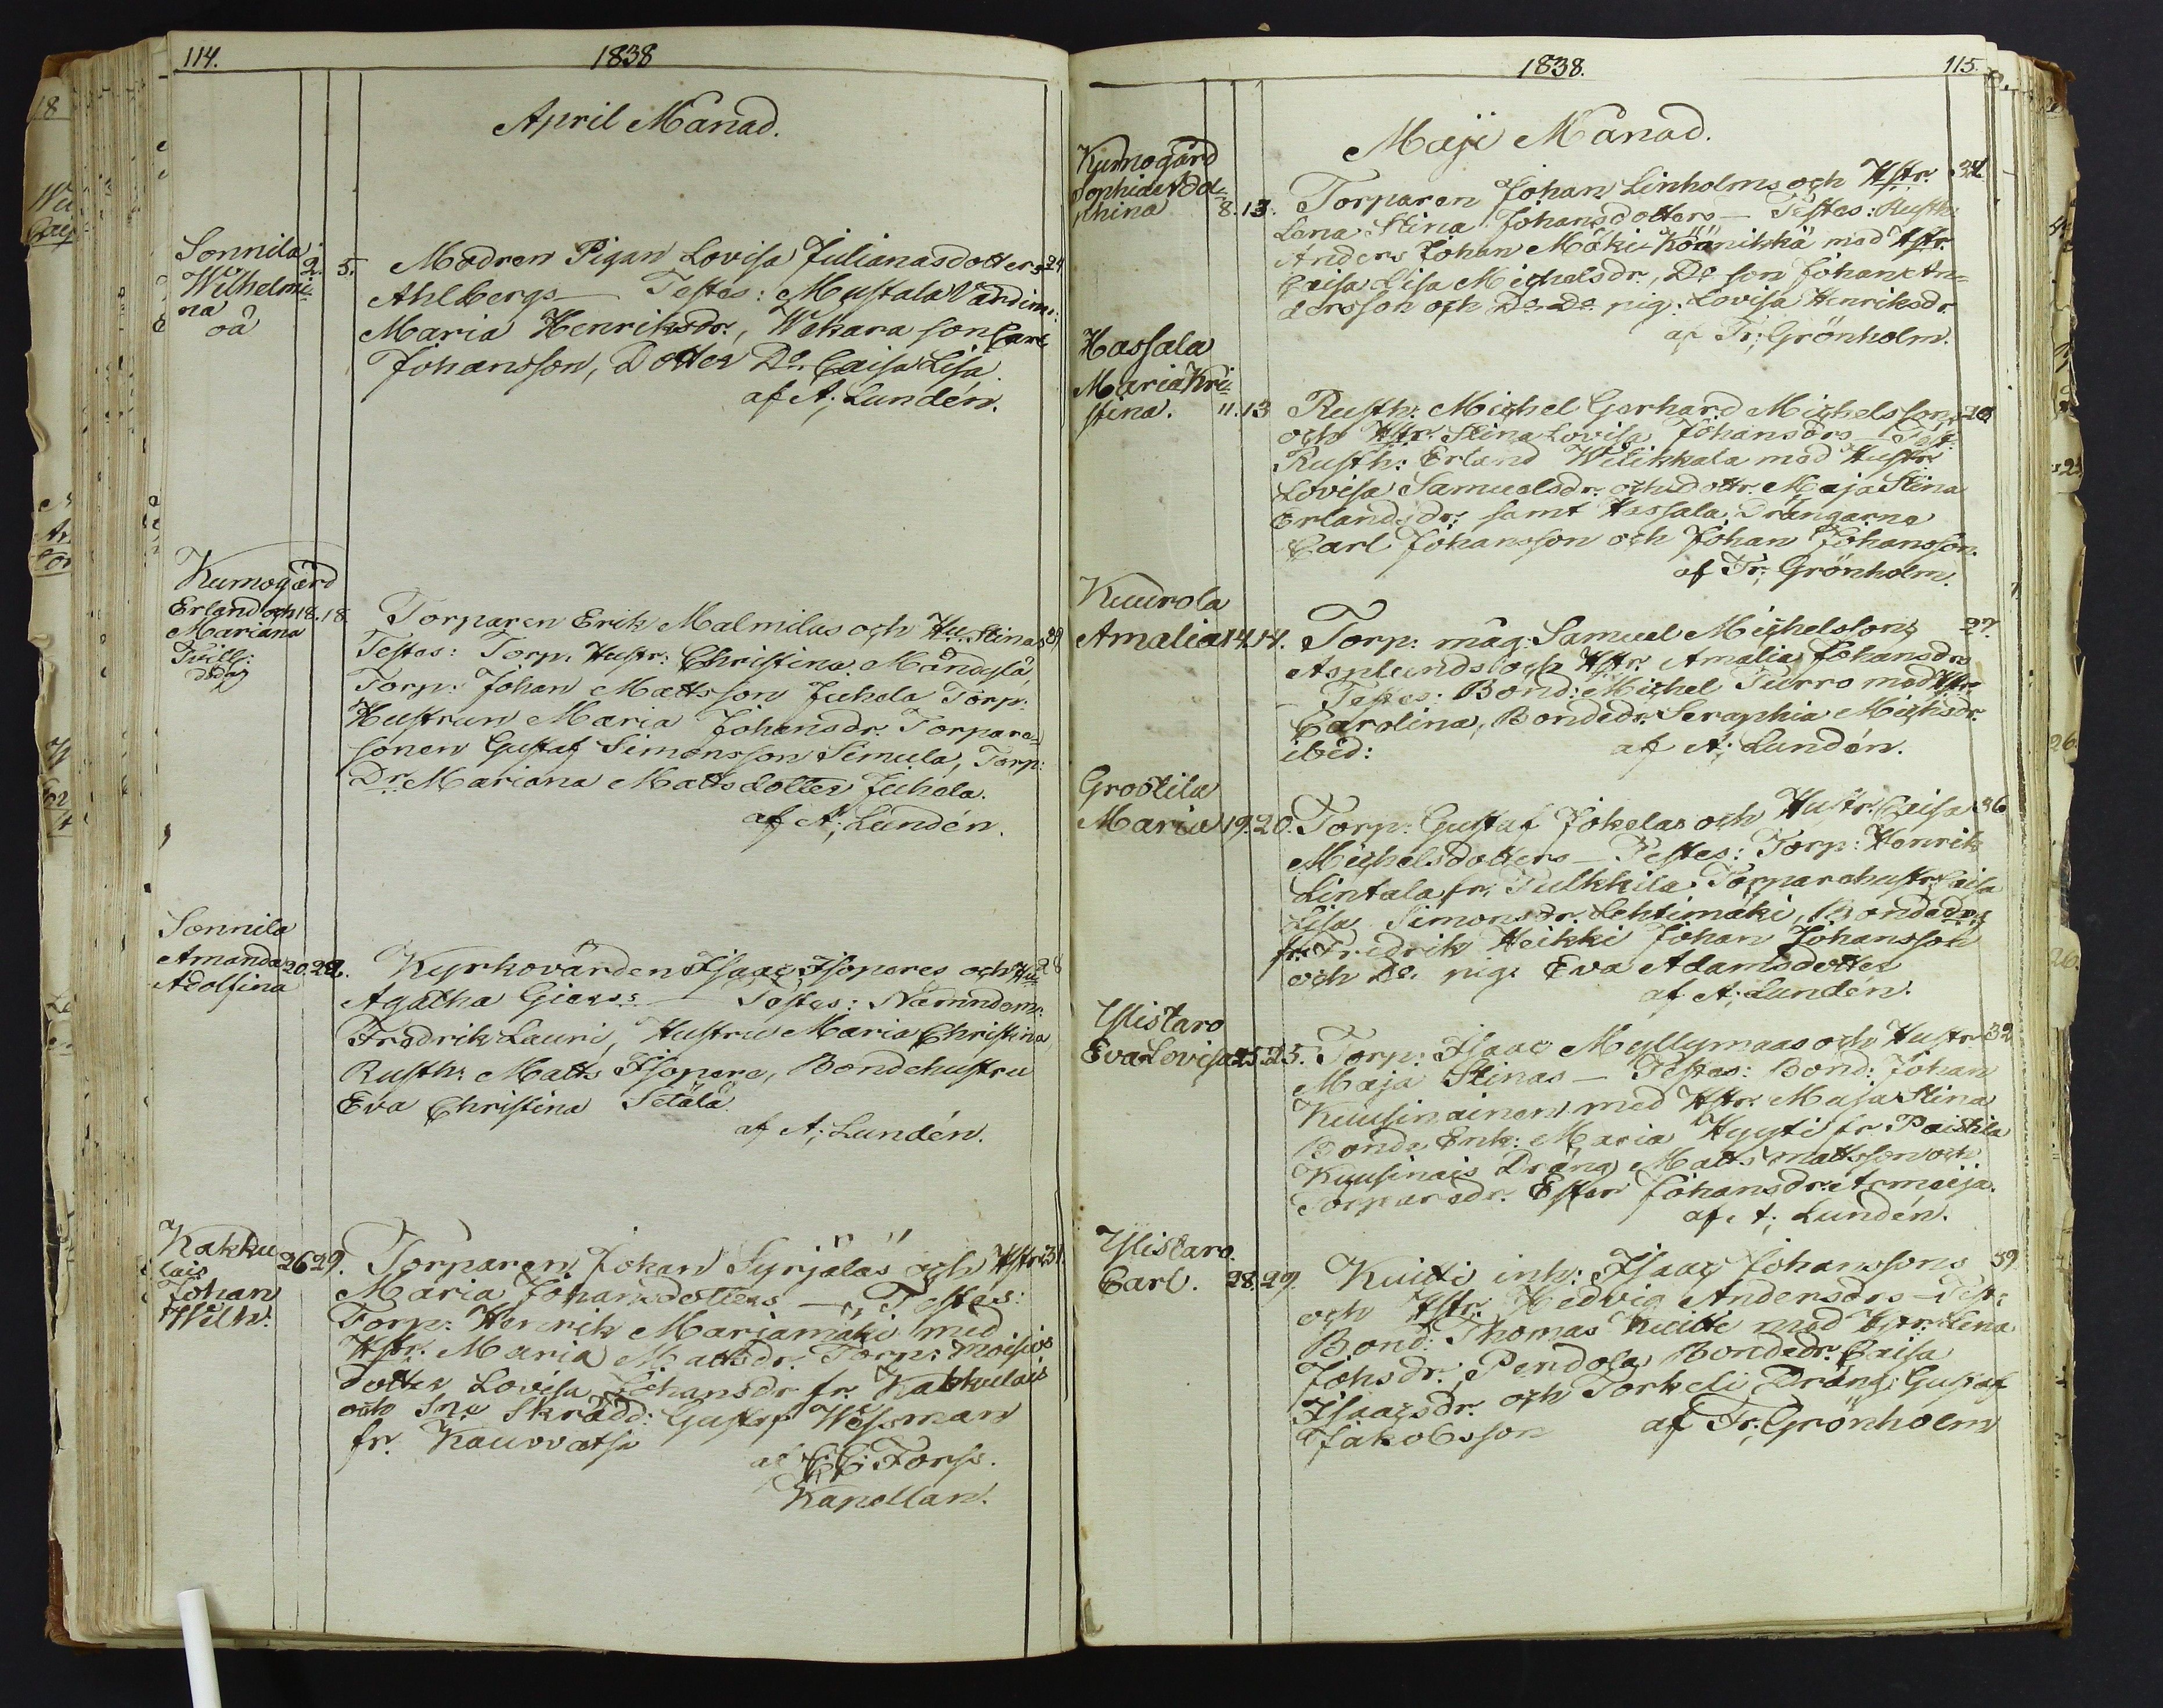 114.
1838
April Månad.
Sonnila
Wilhelmi-
na
oä
2. 5. Modren Pigan Lovisa Julianasdotters 24
Ahlbergs — Testes: Mustala
Maria Henriksdr., Wekara son Carl
Johansson, Dotter Do. Caisa Lisa
af A; Lundén.
Kumogård
Erland och 18. 18.
Mariana
Tvill:
Torparen Erik Malmilas och Hu. Stinas 39
Testes: Torp. Hustr: Christina
Torp: Johan Mattsson Juhola Torp:
Hustrun Maria Johansdr. Torpare-
sonen Gustaf Simonsson Simula, Torp:
Dr. Mariana Mattsdotter Juhola.
af A; Lundén.
Sonnila
Amanda 20. 22.
Adolfina
Kyrkovärden Isaac Isopares och Hu 28
Agatha — Testes: Nämndem:
Fredrik Lauri, Hustru Maria Christina
Rusth: Matts Isopere, Bondehustru
Eva Christina Setälä.
af A; Lundén.
Kakku
lais 26 29.
Johan
Wilh:
Torparen Johan Syrjäläs och Hstr 31.
Maria Johansdotters — Testes:
Torp: Henrik Marjamäki med
Hstr. Maria Mattsdr. Torp: Moisios
dotter Lovisa Johansdr fr. Kakkulais
och Skrädd: Gustaf Wessman
fr. Kauvatsa
Forss.
Kapellan.
1838.
115.
Maji Månad.
Kumogård
Sophia Adol-
phina 8. 13.
Torparen Johan Linholms och Hstr. 34
Lena Stina Johansdotters — Testes: Rusth:
Anders Johan Mäki Köönikkä med Hstr.
Caisa Lisa Michelsdr., Do son Johan An-
dersson och Do. Do. pig: Lovisa Henriksdr.
af Fr; Grönholm.
Hassala
Maria Kri-
stina. 11. 13
Rusth: Michel Gerhard Michelssons 20
och Hstr. Stina Lovisa Johansdrs — Test:
Rusth: Erland Wilikkala med Hustr
Lovisa Samuelsdr. och dottr. Maja Stina
Erlandsdr: samt Hassala Drängarne
Carl Johansson och Johan Johansson.
af Fr; Grönholm.
Kuurola
Amalia 14. 14.
Torp: måg: Samuel Michelssons 27.
Asplunds och Hstr. Amalia Johansdrs
Testes: Bond: Michel Turro med Hstr
Carolina, Bondedr. Seraphia Michsdr.
ibid: af A; Lundén.
Grootila
Maria 19. 20.
Torp: Gustaf Jokelas och Hustr. Caisa 36
Michelsdotters — Testes: Torp: Henrik
Lintala fr. Pulkkila Torparehustr Caisa
Lisa Simonsdr. Lehtimäki, Bondedrg
fr. Fredrik Heikki Johan Johansson
och Do. pig: Eva Adamsdotter
af A; Lundén.
Ylistaro
Eva Lovisa 25. 25.
Torp: Isaac Myllymaas och Hustr 32
Maja Stinas — Testes: Bond: Johan
Kuusinainen med Hstr. Maja Stina
Bonde Enk: Maria Hyyti fr. Paistila
Kuusinais Dräng Matts Mattsson och
Torparedr. Ester Johansdr. Armeija.
af A; Lundén.
Ylistaro.
Carl. 28. 29.
Kuitti inh: Isaac Johanssons 39
och Hstr. Hedvig Andersdrs — Test:
Bond: Thomas Kuitti med Hstr. Lena
Johsdr; Pendola Bondedr. Caisa
Isaacsdr. och Torkeli Dräng: Gustaf
Jakobsson af Fr; Grönholm